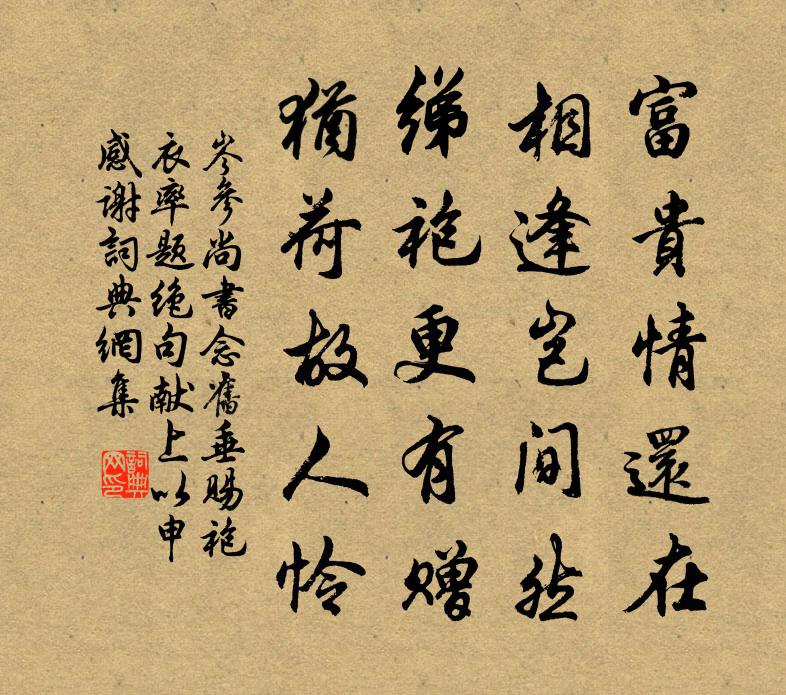 富貴情還在
相逢岂間然
綈袍更有赠
猶荷故人怜
岑參尚書念舊垂賜袍
衣率題絶句献上以申
感謝詞典網集
詞典网印